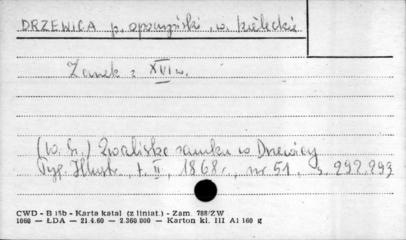 DRZEWICA p. opoczyński, w. kieleckie
Zamek z XVI w.
(W. G.) Zwaliska zamku w Drzewicy
Tyg. Illustr. t. II, 1868 r., nr 51, s. 292.293
CWD - B 15b - Karta katal (z liniat.) - Zam. 788/ZW
1060 — ŁDA — 21.4.60 — 2.360.000 — Karton kl. III A1 160 g